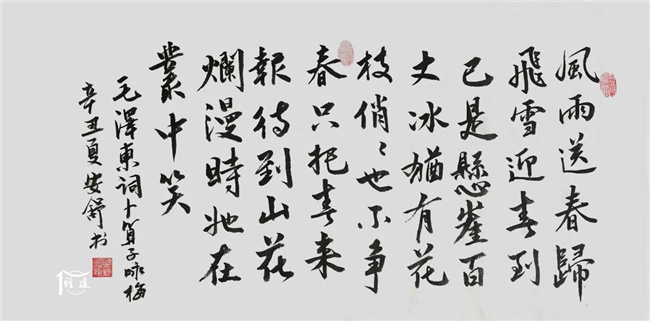 風雨送春歸
飛雪迎春到
已是懸崖百
丈冰猶有花
枝俏々也不争
春只把春来
報待到山花
爛漫時她在
叢中笑
毛澤東詞卜算子咏梅
辛丑夏安舒书